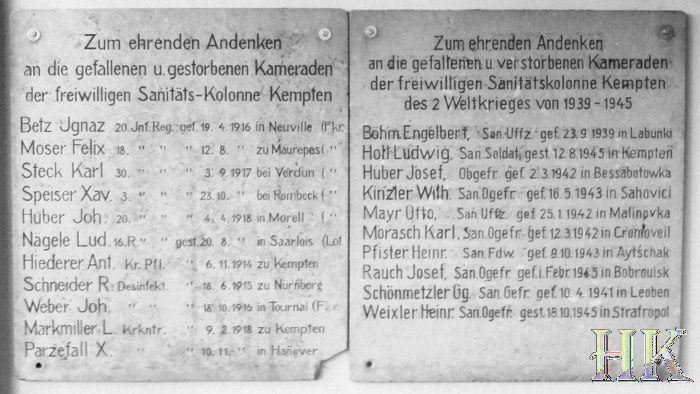 Zum ehrenden Andenken
an die gefallenen u. gestorbenen Kameraden
der freiwilligen Sanitäts-Kolonne Kempten
Betz Jgnaz 20. Jnf. Reg. gef. 19. 4. 1916 in Neuville (Fkr.
Moser Felix 18. " " " 12. 8. " zu Maurepas ( "
Steck Karl 30. " " " 3. 9. 1917 bei Verdun ( "
Speiser Xav. 3. " " " 23. 10. " bei Rombeck ( "
Huber Joh. 20. " " " 4. 4. 1918 in Morell ( "
Nägele Lud. 16. R. " " gest. 20. 8. " in Saarlois (Lot
Hiederer Ant. Kr. Pfl. " 6. 11. 1914 zu Kempten
Schneider R. Desinfekt. " 18. 6. 1915 zu Nürnberg
Weber Joh. " " 18. 10. 1916 in Tournai (F
Markmiller L. Krkntr. " 9. 2. 1918 zu Kempten
Parzefall X. " " 10. 11. " in Hanover
Zum ehrenden Andenken
an die gefallenen u. verstorbenen Kameraden
der freiwilligen Sanitätskolonne Kempten
des 2 Weltkrieges von 1939 - 1945
Böhm Engelbert, San Uffz. gef. 23. 9. 1939 in Labunki
Hotl Ludwig. San. Soldat, gest 12. 8 1945 in Kempten
Huber Josef, Obgefr gef. 2. 3 1942 in Bessabotowka
Kinzler Wilh. San. Ogefr. gef. 16. 5 1943 in Sahovici
Mayr Otto, San. Uffz gef. 25. 1. 1942 in Malinovka
Morasch Karl, San. Ogefr gef. 12. 3 1942 in
Pfister Heinr. San. Fdw gef. 9. 10. 1943 in Aytschak
Rauch Josef, San. Ogefr gef. 1. Febr. 1945 in Bobrouisk
Schönmetzler Gg. San. Gefr. gef. 10. 4. 1941 in Leoben
Weixler Heinr. San. Ogefr. gest. 18. 10. 1945 in Strafropol
HK